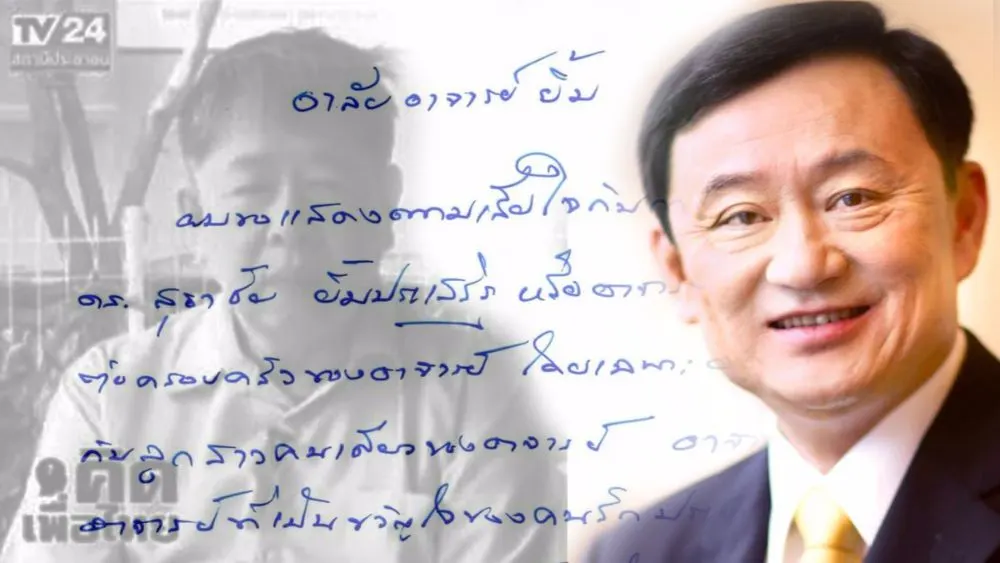 TV 24
สถานีประชาชน
อาลัย อาจารย์ ยิ้ม
ผมขอแสดงความเสียใจกับ
ดร. สุธาชัย ยิ้มประเสริฐ หรืออาจาร
ต่อครอบครัวของอาจารย์ โดยเฉพาะ
กับลูกสาวคนเดียวของอาจารย์ อาจา
อาจารย์ที่เป็นขวัญใจของคนรักประ
คิด
เพื่อไทย